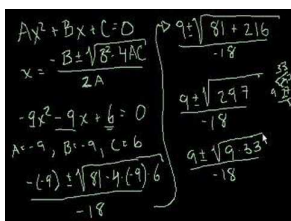 Ax² + Bx + C = 0
x = (-B ± √(B² - 4AC)) / 2A
-9x² - 9x + 6 = 0
A = -9, B = -9, C = 6
(-(-9) ± √(81 - 4·(-9)·6)) / -18
(9 ± √(81 + 216)) / -18
(9 ± √297) / -18
(9 ± √(9·33)) / -18